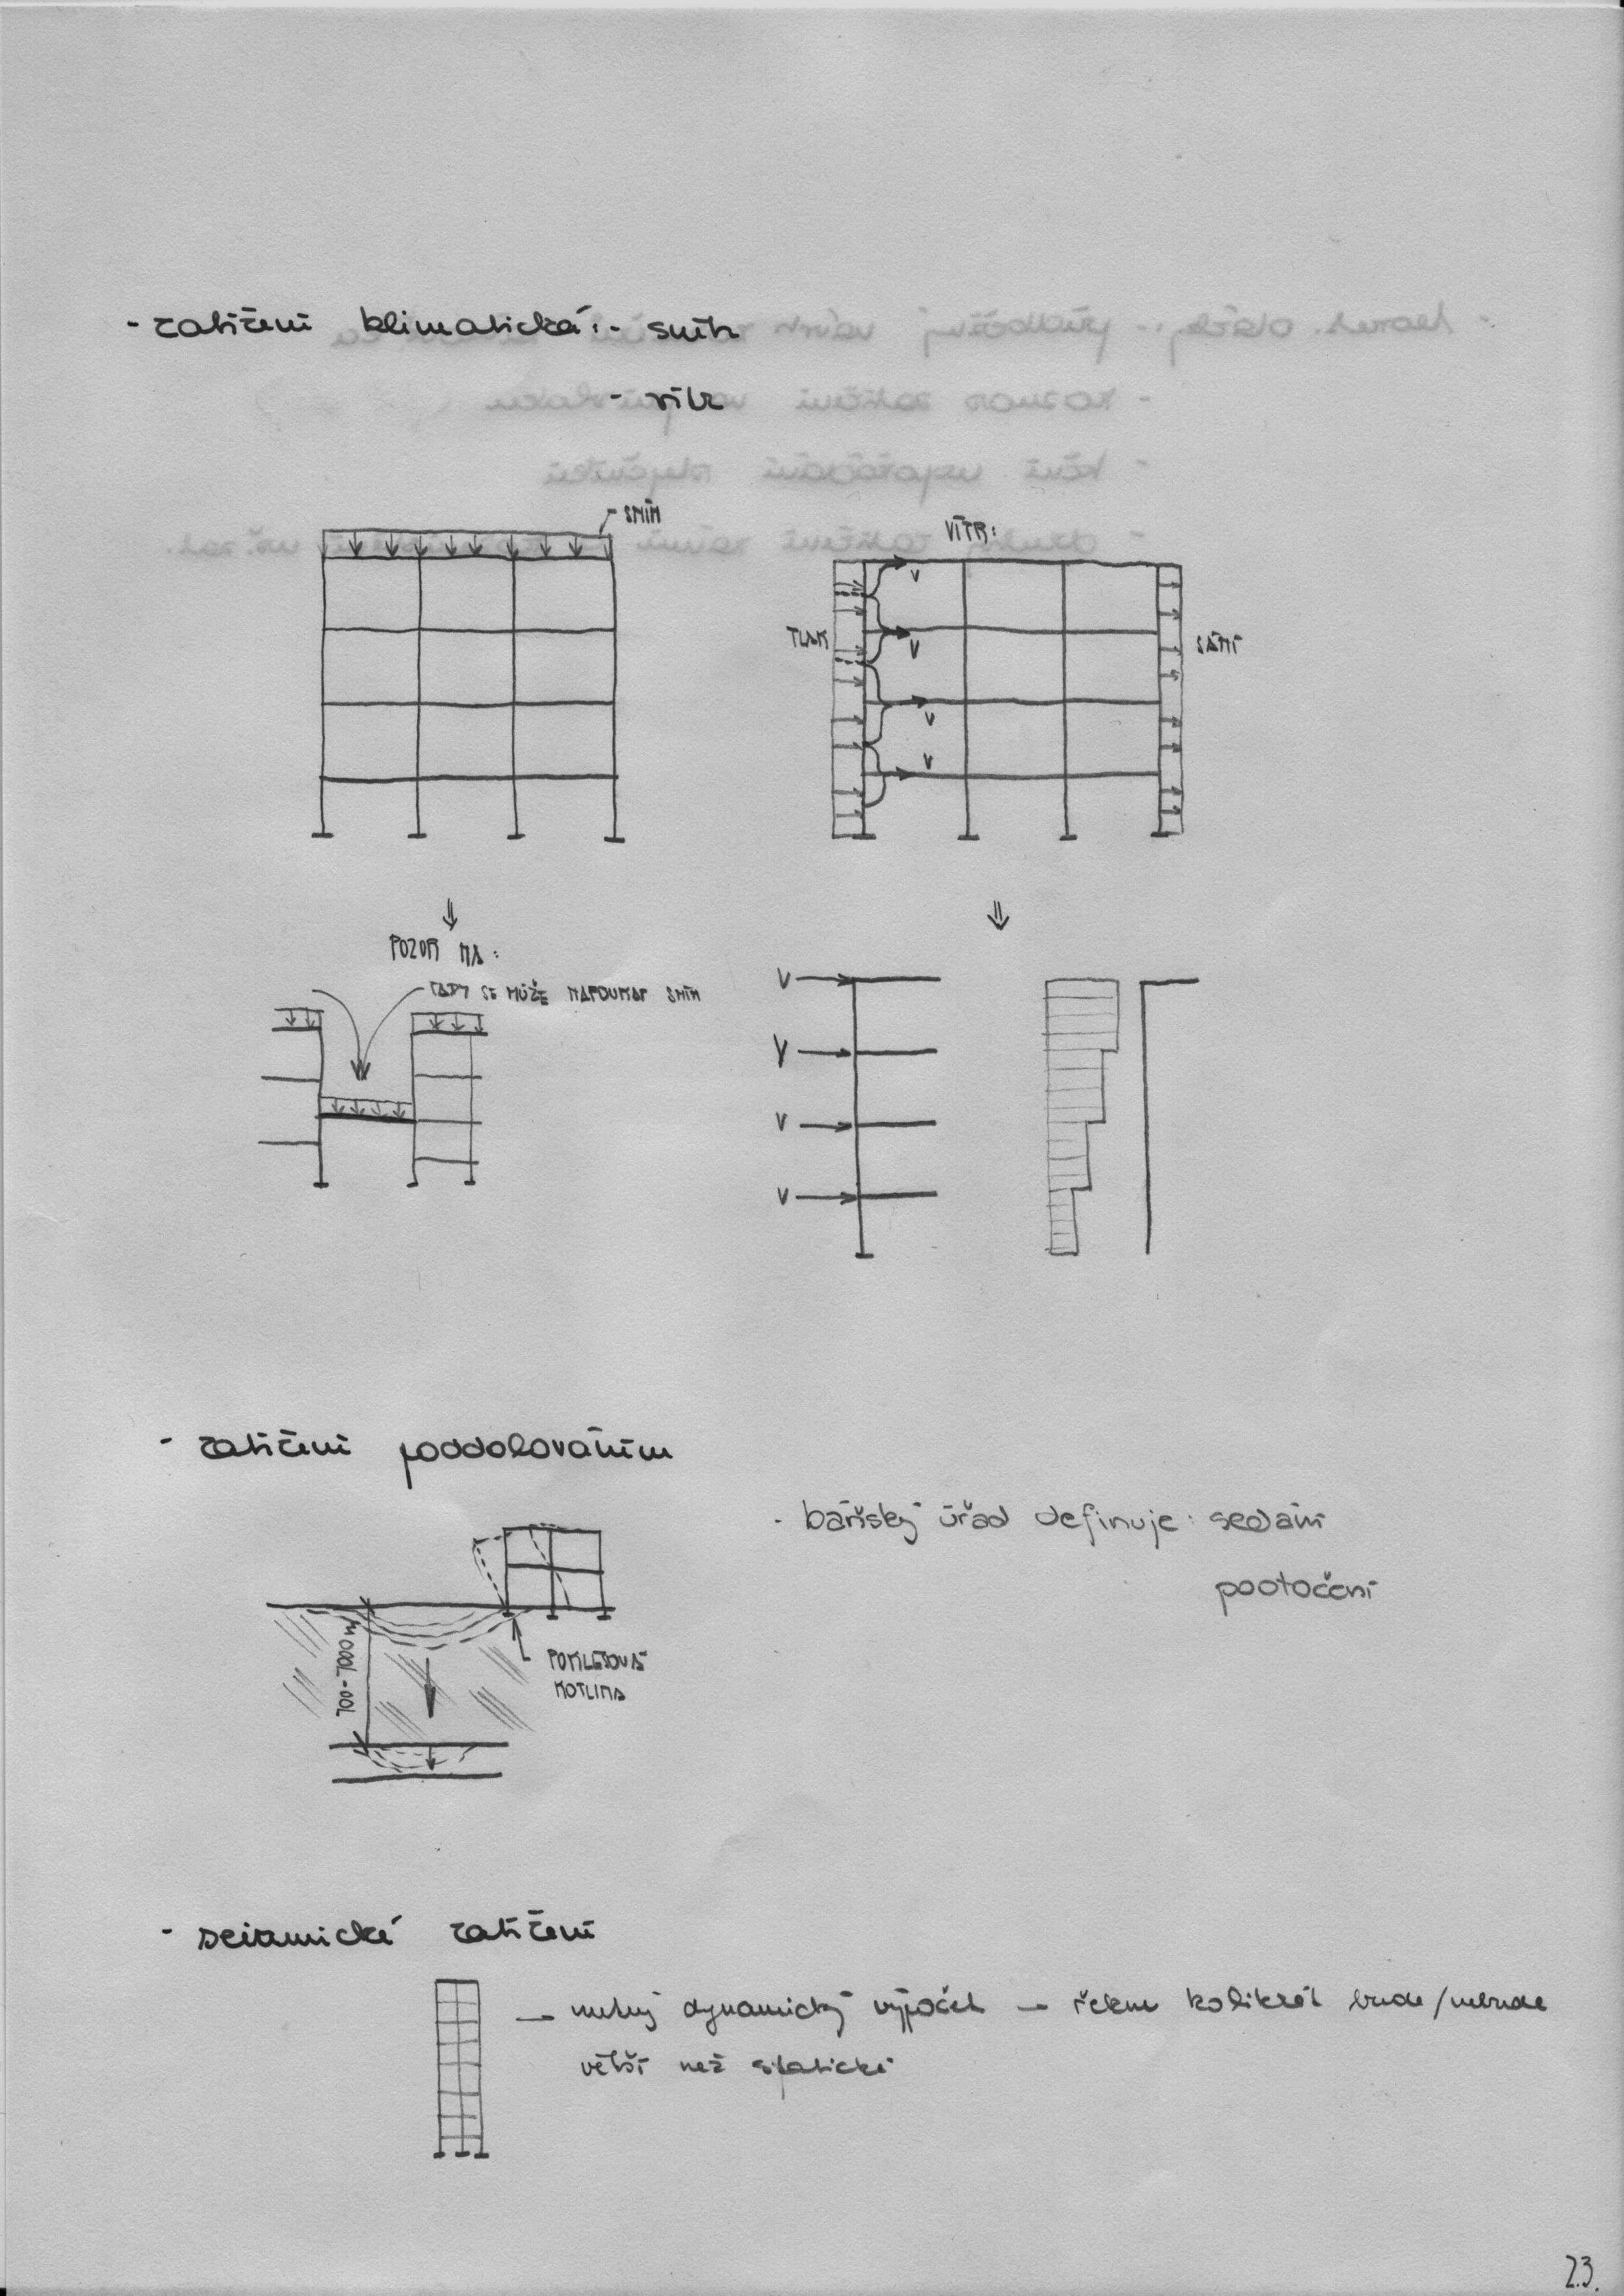 - zatížení klimatická: - sníh
- vítr
SNÍH
VÍTR:
V
TLAK
V
SÁNÍ
V
V
POZOR NA:
TADY SE MŮŽE NAFOUKAT SNÍH
V
V
V
V
- zatížení poddolováním
- báňský úřad definuje: sedání
pootočení
100-1000 m
POKLESOVÁ
KOTLINA
- seizmické zatížení
→ nutný dynamický výpočet → řekne kolikrát bude/nebude
větší než statické
23.